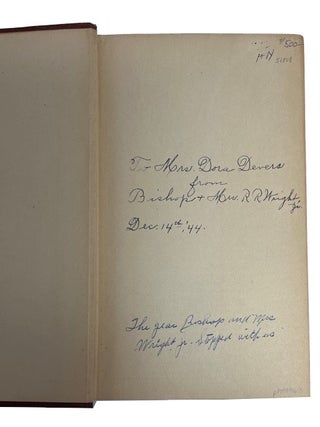 $500-
HN
To Mrs. Dora Devers
from
Bishop + Mrs. R R Wright, Jr.
Dec. 14th, '44.
The year Bishop and Mrs
Wright jr. stopped with us